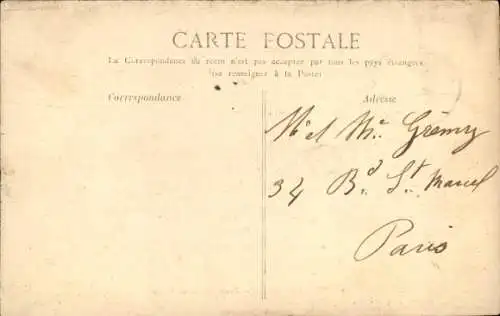 CARTE POSTALE
La Correspondance au recto n'est pas acceptée par tous les pays étrangers
(se renseigner à la Poste)
Correspondance
Adresse
Mr et Me Grémy
34 Bd St Marcel
Paris